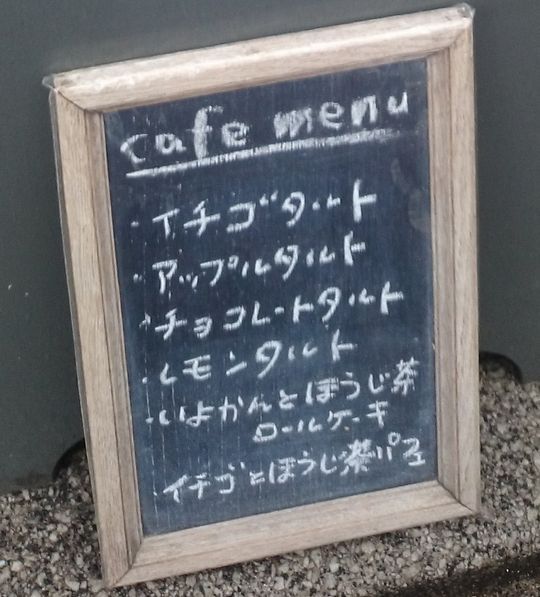 cafe menu
・イチゴタルト
・アップルタルト
・チョコレートタルト
・レモンタルト
・いよかんとほうじ茶
ロールケーキ
イチゴとほうじ茶パフェ